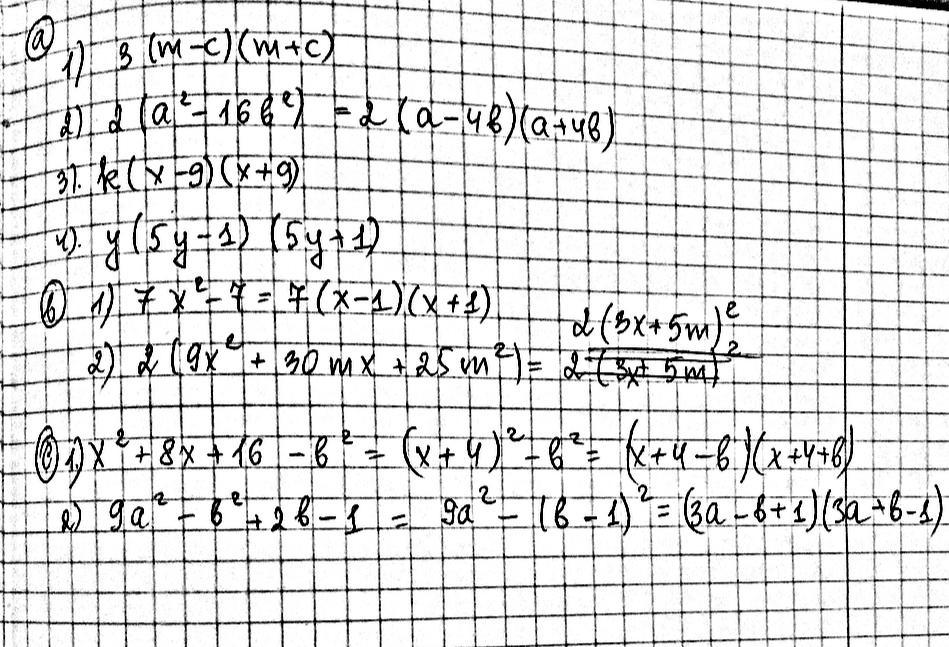 a
1) 3 (m-c)(m+c)
2) 2 (a² - 16b²) = 2 (a-4b)(a+4b)
3). k(x-9)(x+9)
4). y(5y-1) (5y+1)
b 1) 7x² - 7 = 7(x-1)(x+1)
2(3x+5m)²
2) 2 (9x² + 30mx + 25m²) = 2 (3x+5m)²
c 1) x² + 8x + 16 - b² = (x+4)² - b² = (x+4-b)(x+4+b)
2) 9a² - b² + 2b - 1 = 9a² - (b-1)² = (3a-b+1)(3a+b-1)